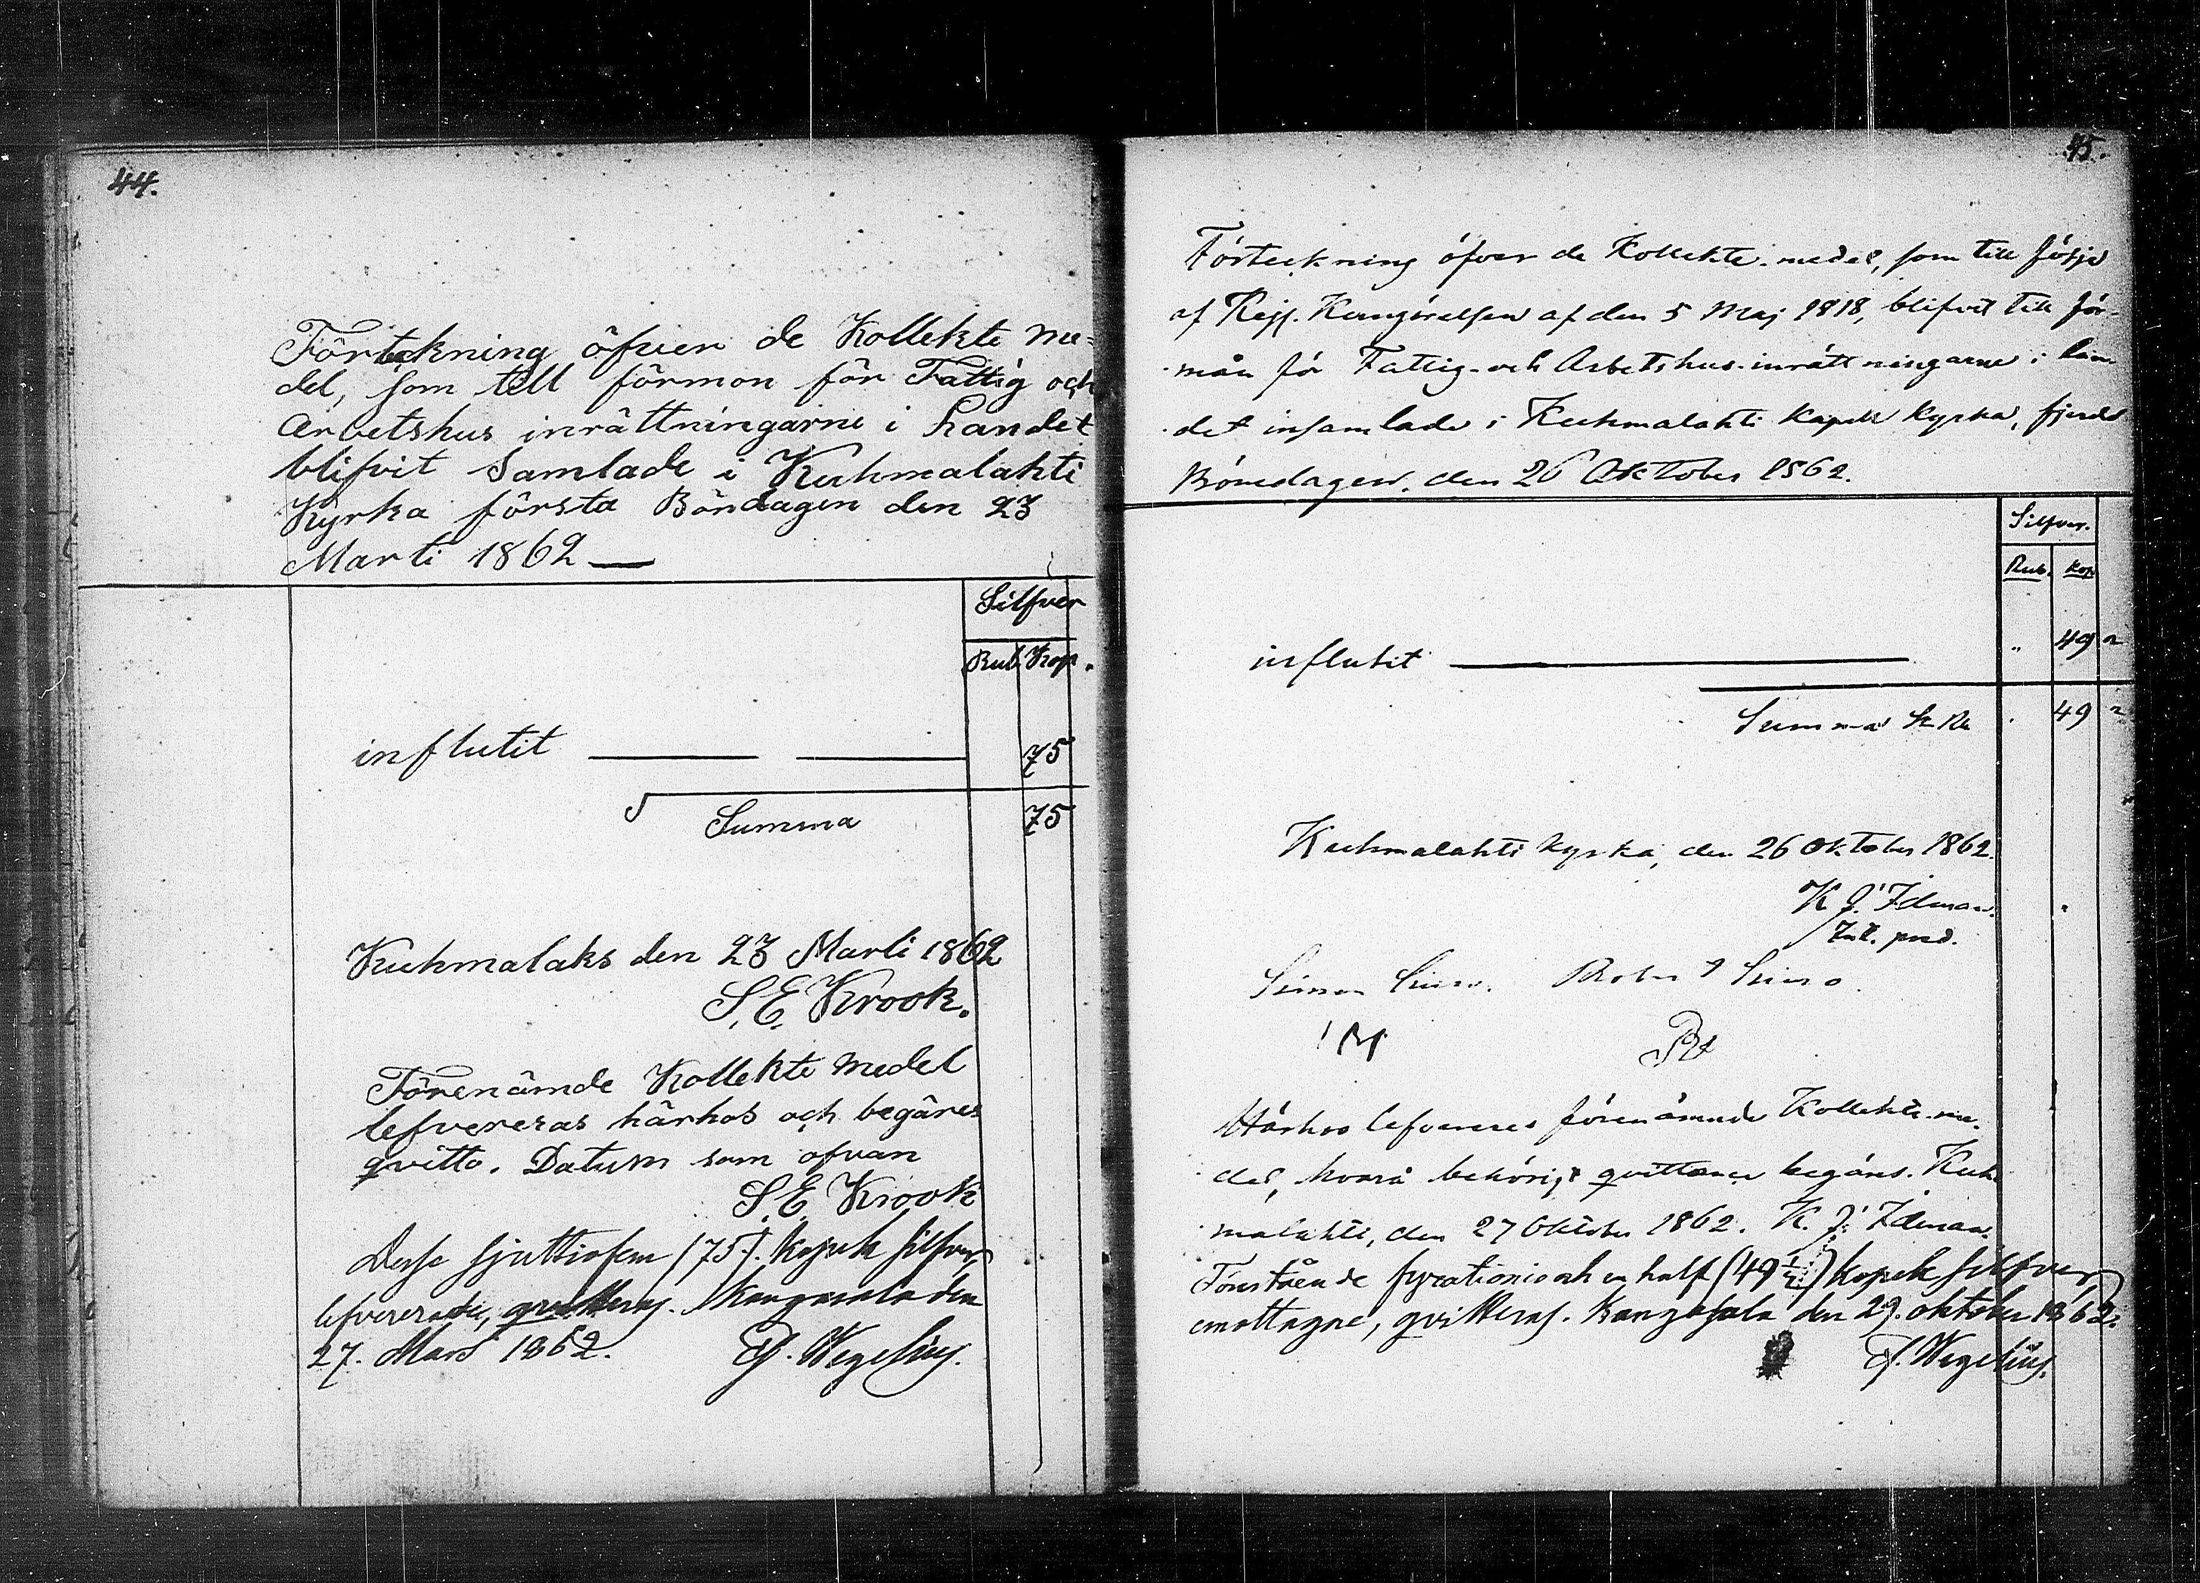 44.
Förtekning öfver de Kollekte me=
del, som till förmon för Fattig och
Arbetshus inrättningarne i Landet
blifvit samlade i Kuhmalahti
Kyrka första Böndagen den 23
Marti 1862 —
Silfver
Rub. Kop.
influtit — — 75
Summa 75
Kuhmalaks den 23 Marti 1862
S. E. Krook.
Förenämde Kollekte medel
lefvereras härhos och begäres
qvitto. Datum som ofvan
S. E. Krook
Desse sjuttiofem (75). kopek silfver,
lefvererade, qvitteras. Kangasala den
27. Mars 1862. Wegelius.
45.
Förteckning öfver de Kollekte-medel, som till följe
af Kejs. Kungörelsen af den 5 Maj 1818, blifvit till för-
mån för Fattig- och Arbetshus-inrättningarne i lan-
det insamlade i Kuhmalahti Kapell kyrka, fjerde
Bönedagen, den 26 Oktober 1862.
Silfver.
Rub. Kop.
influtit — " 49
Summa 49
Kuhmalahti kyrka, den 26 Oktober 1862.
K. J. Idman.
Simon
Härhos lefvereras förenämnde Kollekte-me-
del, hvarå behörigt qvittence begäres. Kuh-
malahti, den 27 Oktober 1862. K. J. Idman.
Förestående fyrationio och en half (49 1/2) kopek silfver
emottagne, qvitteras. Kangasala den 29. oktober 1862.
Wegelius.